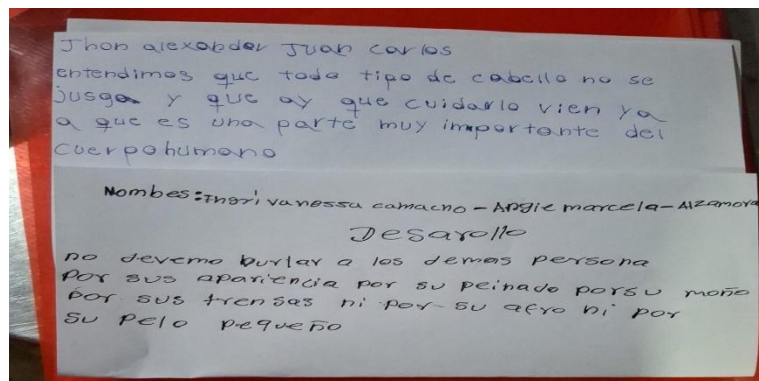 Jhon alexander Juan carlos
entendimos que todo tipo de cabello no se
jusga y que ay que cuidarlo vien ya
a que es una parte muy importante del
cuerpohumano
Nombes: Ingri vanessa camacho - Angie marcela - Alzamora
Desarollo
no devemo burlar a los demas persona
por sus apariencia por su peinado porsu moño
por sus trensas ni por su afro ni por
su pelo pequeño